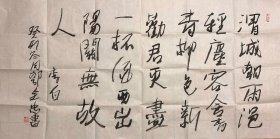 渭城朝雨浥
輕塵客舍
青柳色新
勸君更盡
一杯酒西出
陽關無故
人 李白
癸卯冬月書